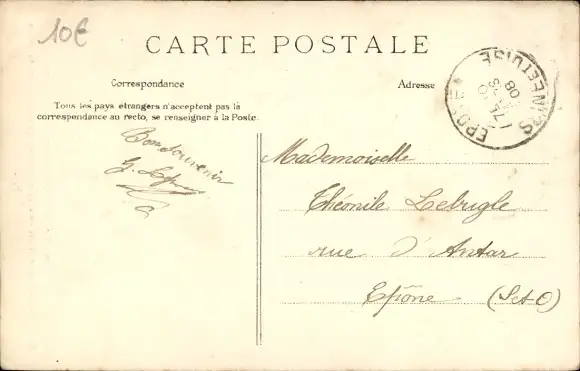 10€
CARTE POSTALE
Correspondance
Adresse
Tous les pays étrangers n'acceptent pas la
correspondance au recto, se renseigner à la Poste.
EPONE SEINE-ET-OISE
08
Bon souvenir
Mademoiselle
Théonile Lebugle
rue d'Antar
Epône (S-et-O)